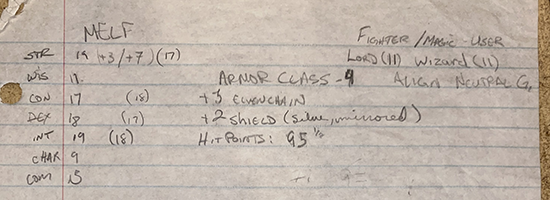 MELF
FIGHTER/MAGIC-USER
STR 19 +3/+7)(17)
LORD(11) WIZARD(11)
WIS 11
ARMOR CLASS -9
ALIGN NEUTRAL G.
CON 17 (18)
+3 ELVENCHAIN
DEX 18 (17)
+2 SHIELD (Silver, mirrored)
INT 19 (18)
HIT POINTS: 95 1/2
CHAR 9
COM 15